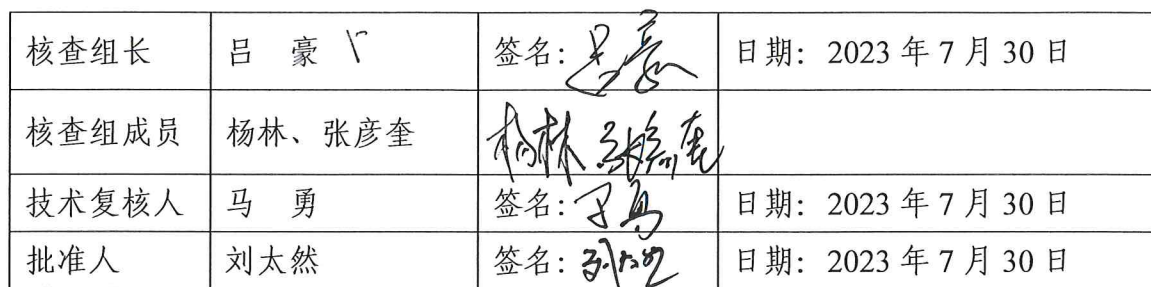 核查组长 吕 豪 签名: 吕豪 日期: 2023 年 7 月 30 日
核查组成员 杨林、张彦奎 杨林 张彦奎
技术复核人 马 勇 签名: 马勇 日期: 2023 年 7 月 30 日
批准人 刘太然 签名: 刘太然 日期: 2023 年 7 月 30 日